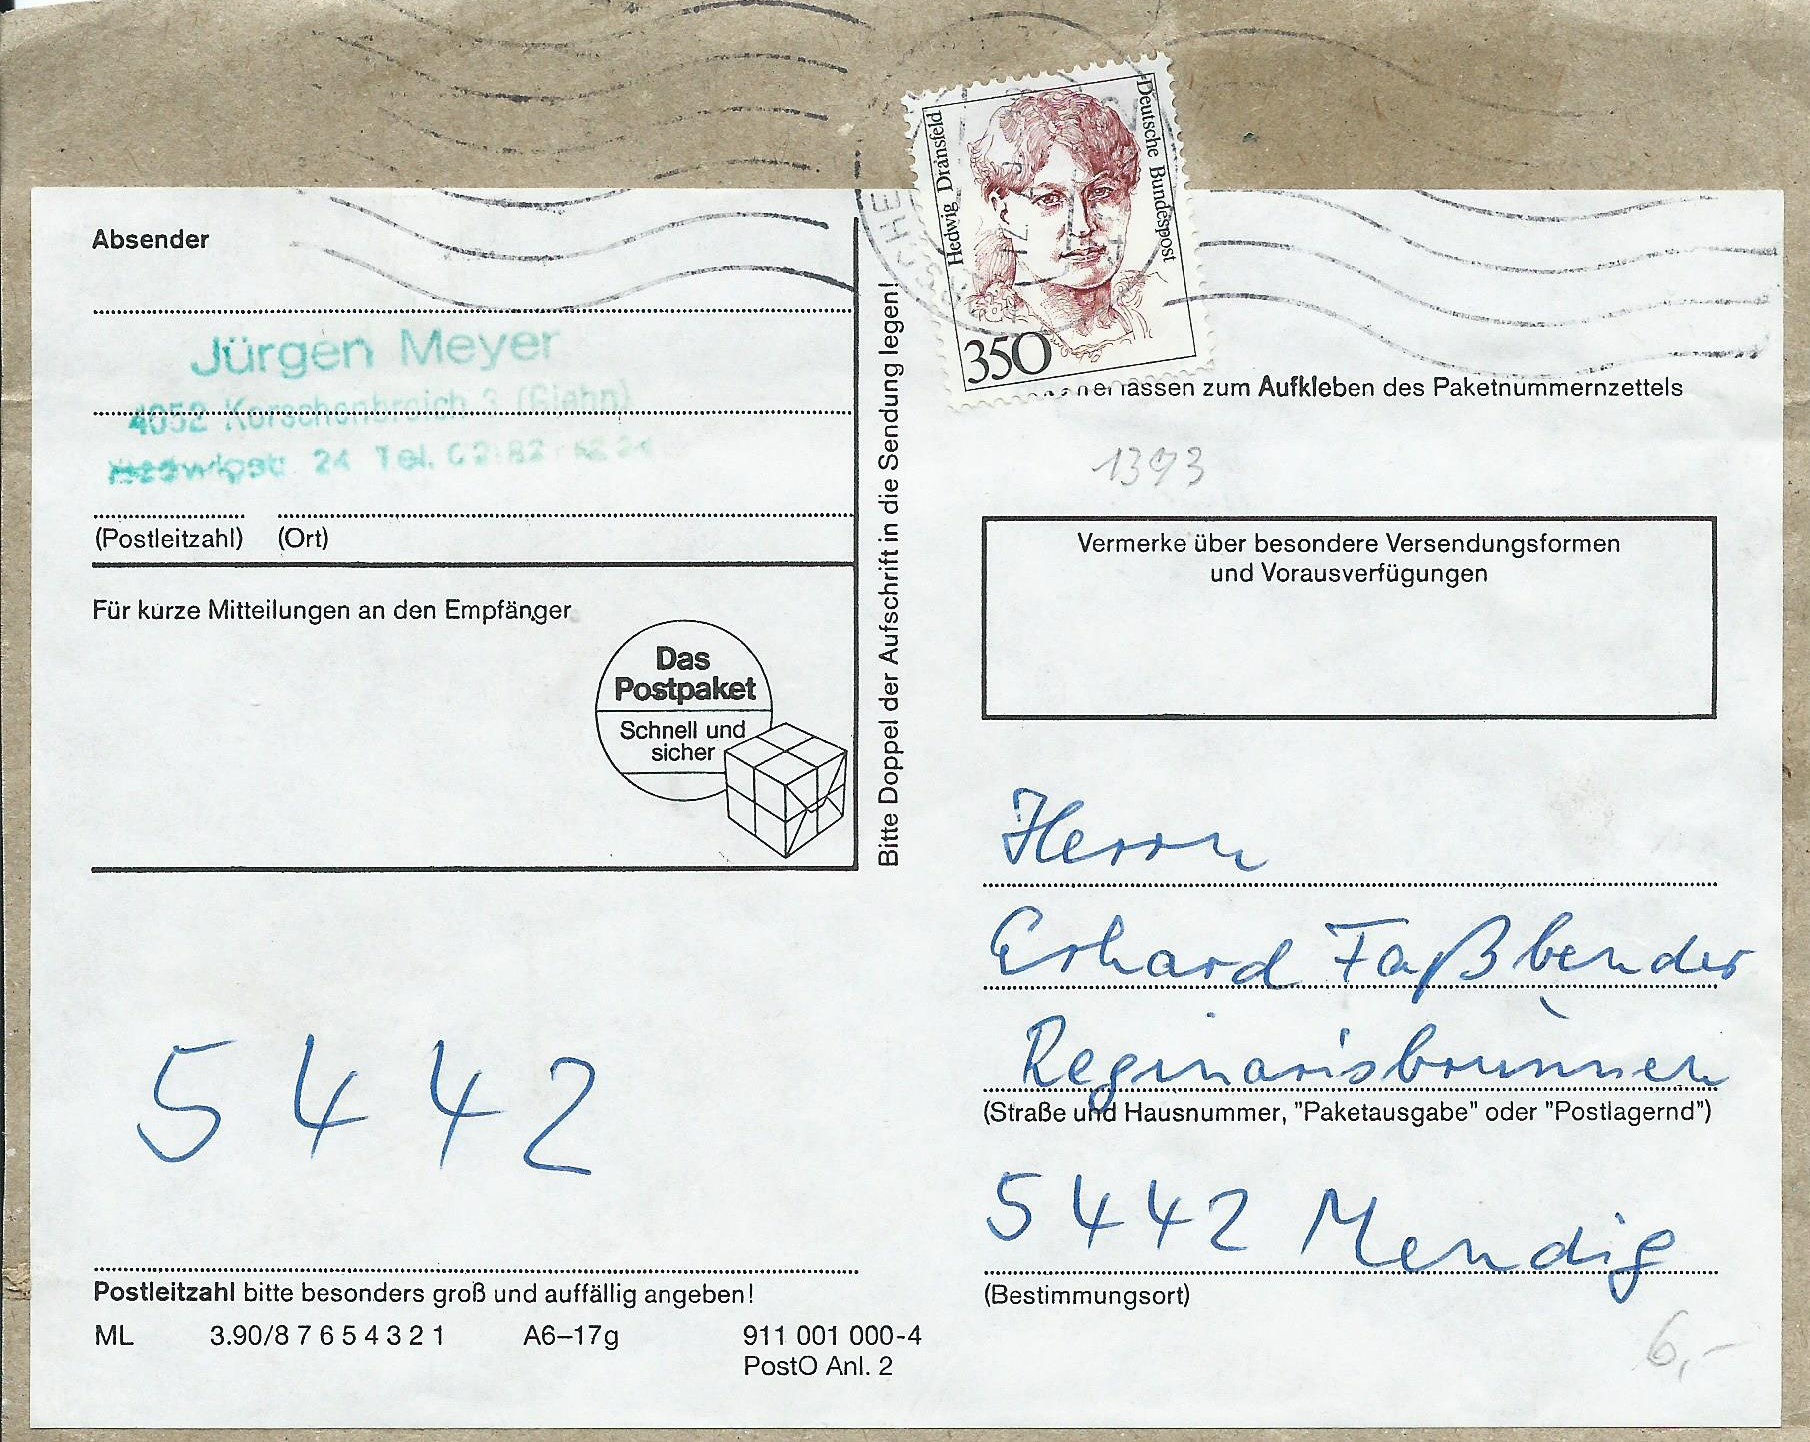 Deutsche Bundespost
Hedwig Dransfeld
350
Absender
Jürgen Meyer
4052 Korschenbroich 3 (Glehn)
24 Tel.
(Postleitzahl) (Ort)
Für kurze Mitteilungen an den Empfänger
Das
Postpaket
Schnell und
sicher
Bitte Doppel der Aufschrift in die Sendung legen!
zum Aufkleben des Paketnummernzettels
1393
Vermerke über besondere Versendungsformen
und Vorausverfügungen
Herrn
Erhard Faßbender
Reginarisbrunnen
(Straße und Hausnummer, "Paketausgabe" oder "Postlagernd")
5442 Mendig
(Bestimmungsort)
5442
Postleitzahl bitte besonders groß und auffällig angeben!
ML 3.90/8 7 6 5 4 3 2 1 A6–17g 911 001 000-4
PostO Anl. 2
6,-